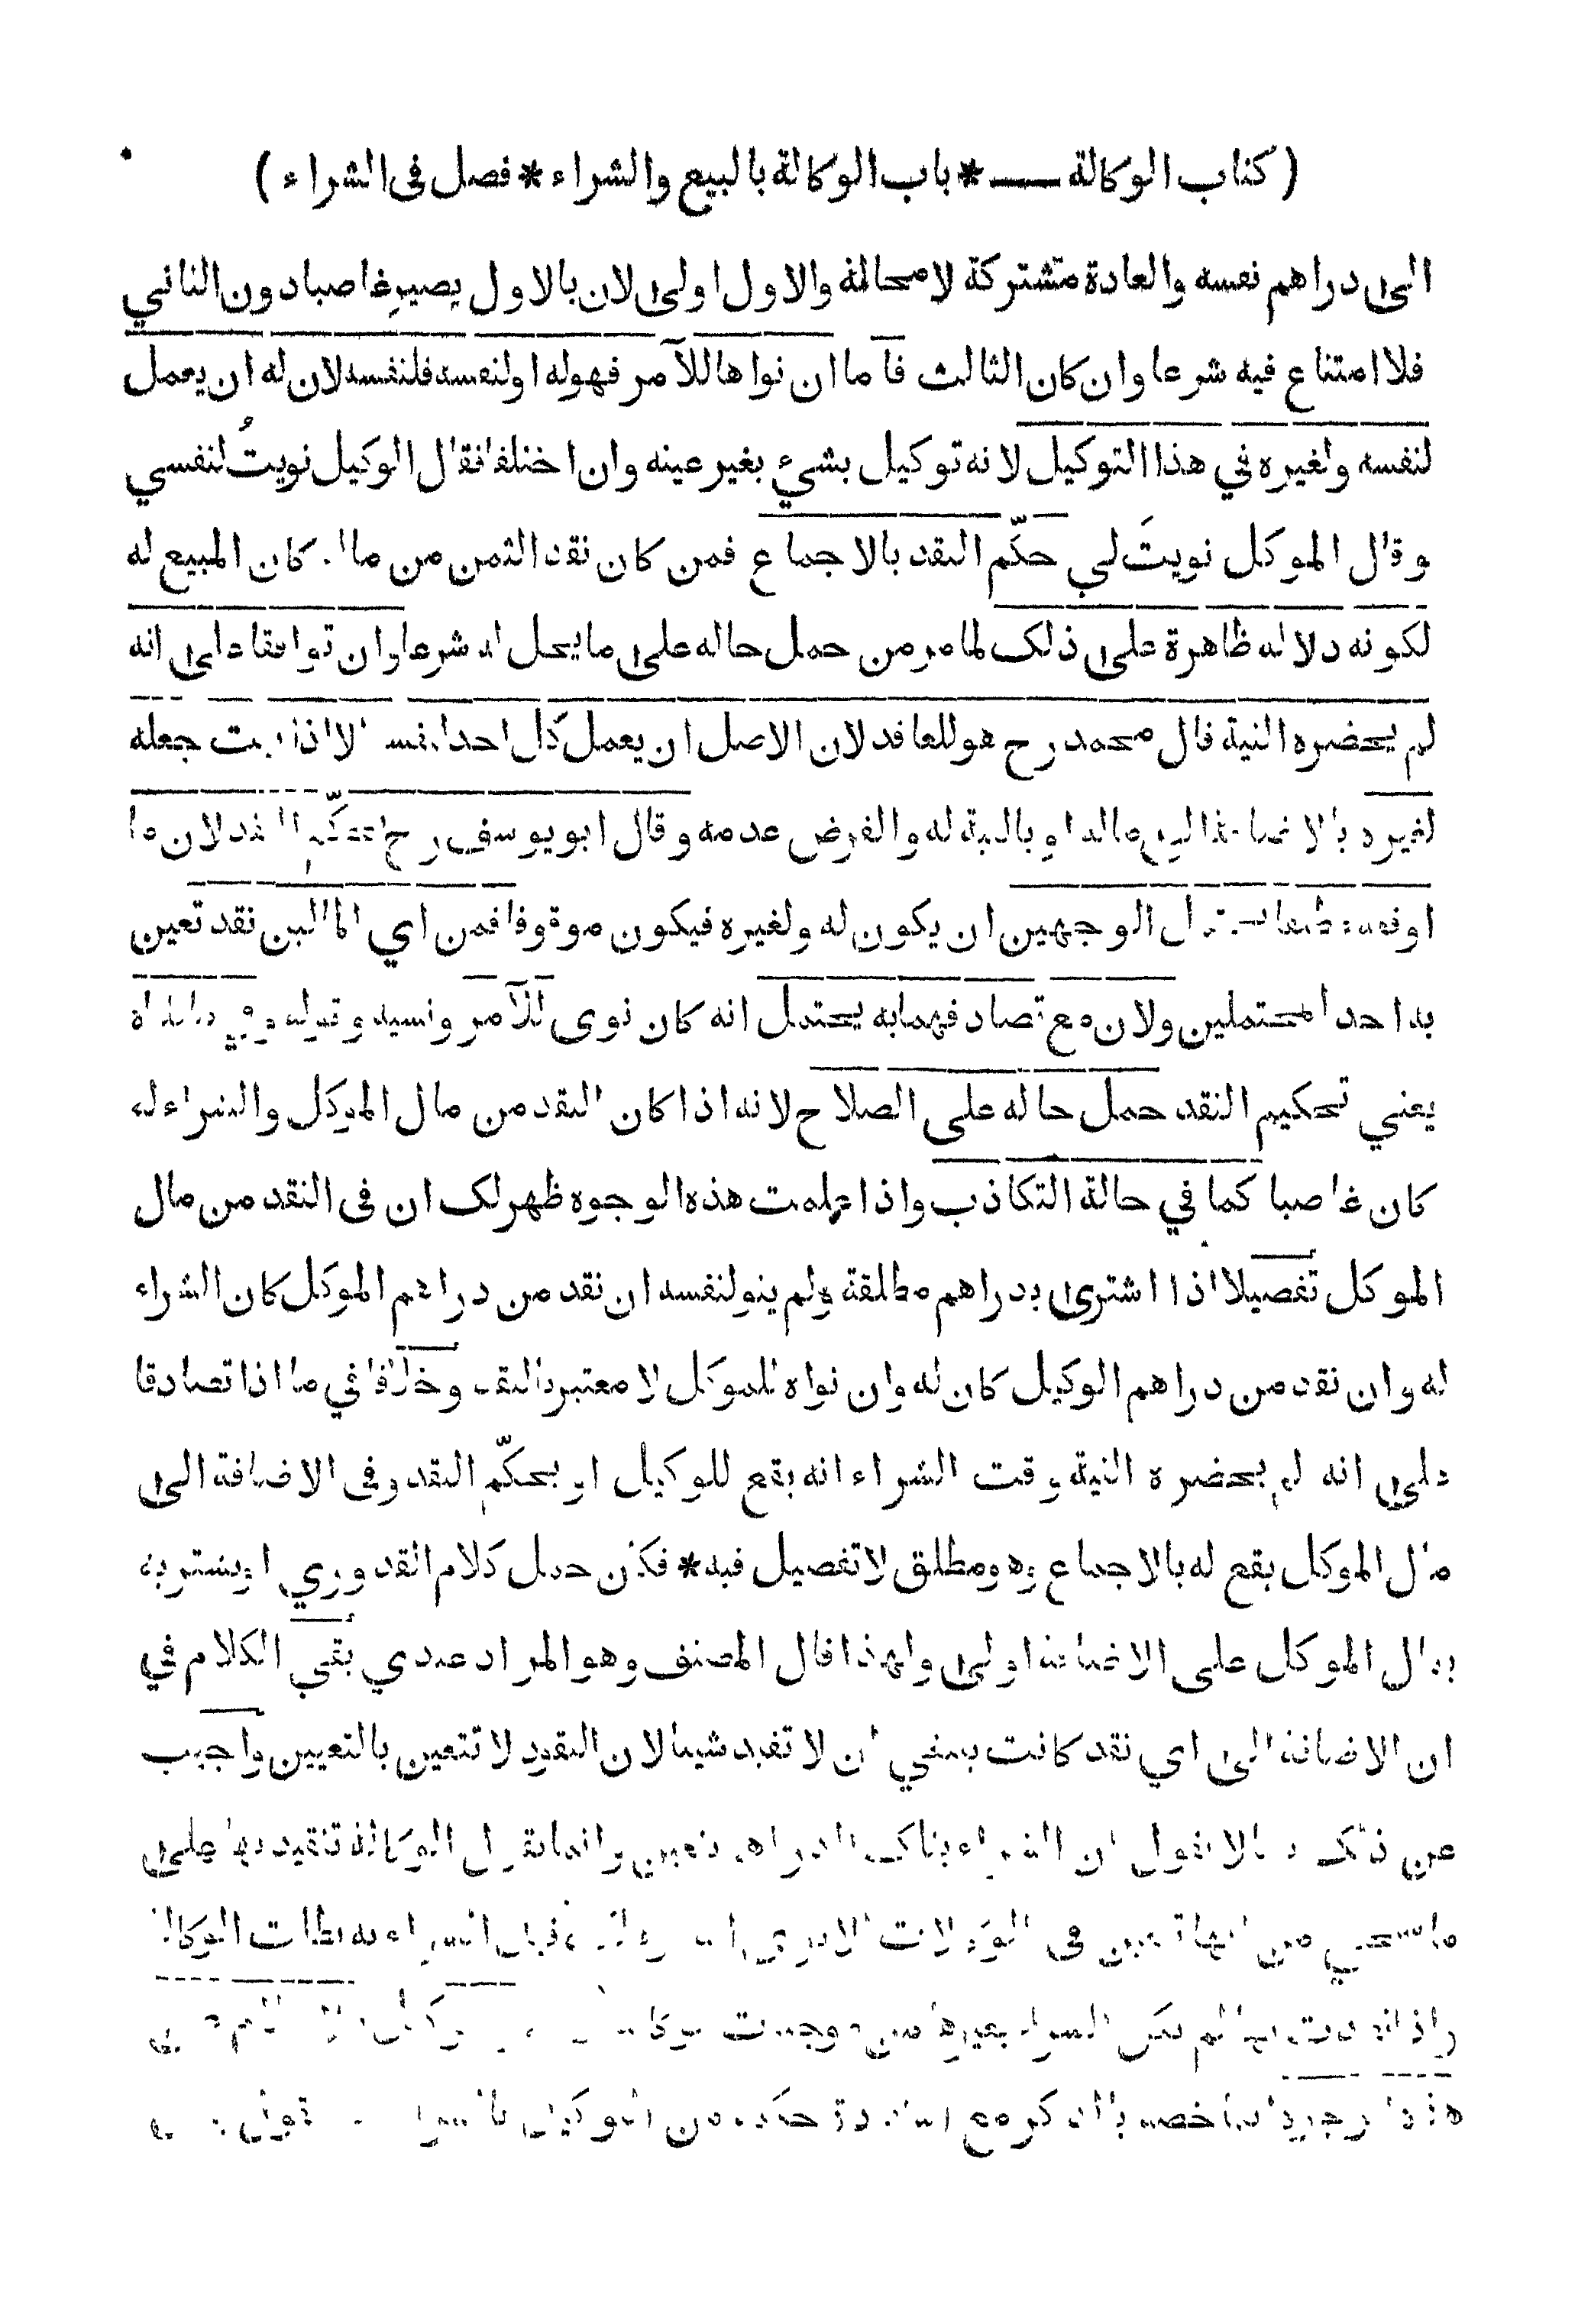 ( كتاب الوكالة — * باب الوكالة بالبيع والشراء * فصل فى الشراء )
الى دراهم نفسه والعادة متشتركة لا محالة والاول اولى لان بالاول يصير غاصبا دون الثاني
فلا امتناع فيه شرعا وان كان الثالث فآ ما ان نواها للآمر فهو له او لنفسه فلنفسه لان له ان يعمل
لنفسه ولغيره في هذا التوكيل لانه توكيل بشيء بغير عينه وان اختلفا فقال الوكيل نويتُ لنفسي
وقال الموكل نويتَ لي حكّم النقد بالاجماع فمن كان نقد الثمن من ماله كان المبيع له
لكونه دلالة ظاهرة على ذلك لما مر من حمل حاله على ما يحل له شرعا وان توافقا على انه
لم يحضره النية قال محمد رح هو للعاقد لان الاصل ان يعمل كل احد لنفسه الا اذا ثبت جعله
لغيره بالاضافة الى ماله او بالنية له والفرض عدمه وقال ابو يوسف رح يحكّم النقد لان ما
اوقعه مطلقا يحتمل الوجهين ان يكون له ولغيره فيكون موقوفا فمن اي المالين نقد تعين
به احد المحتملين ولان مع تصادقهما به يحتمل انه كان نوى للآمر ونسيه وقوله وفيما قلناه
يعني تحكيم النقد حمل حاله على الصلاح لانه اذا كان النقد من مال الموكل والشراء له
كان غاصبا كما في حالة التكاذب واذا علمت هذه الوجوه ظهر لك ان فى النقد من مال
الموكل تفصيلا اذا اشترى بدراهم مطلقة ولم ينو لنفسه ان نقد من دراهم الموكل كان الشراء
له وان نقد من دراهم الوكيل كان له وان نواه للموكل لا معتبر بالنقد وخلافا في ما اذا تصادقا
على انه لم يحضره النية وقت الشراء انه يقع للوكيل او يحكّم النقد وفى الاضافة الى
مال الموكل يقع له بالاجماع وهو مطلق لا تفصيل فيه * فكان حمل كلام القدوري او يشتريه
بمال الموكل على الاضافة اولى ولهذا قال المصنف وهو المراد عندي بقي الكلام في
ان الاضافة الى اي نقد كانت ينبغي ان لا تفيد شيئا لان النقود لا تتعين بالتعيين واجيب
عن ذلك الا نقول ان الشراء بتلك الدراهم يتعين وانما نقول الوكالة تتقيد بها على
ما من انها تتعين فى الوكالات قبل الشراء به بطلت الوكالة
واذا لم يكن الشراء بغيرها
خصه بالذكر مع حكمه من التوكيل